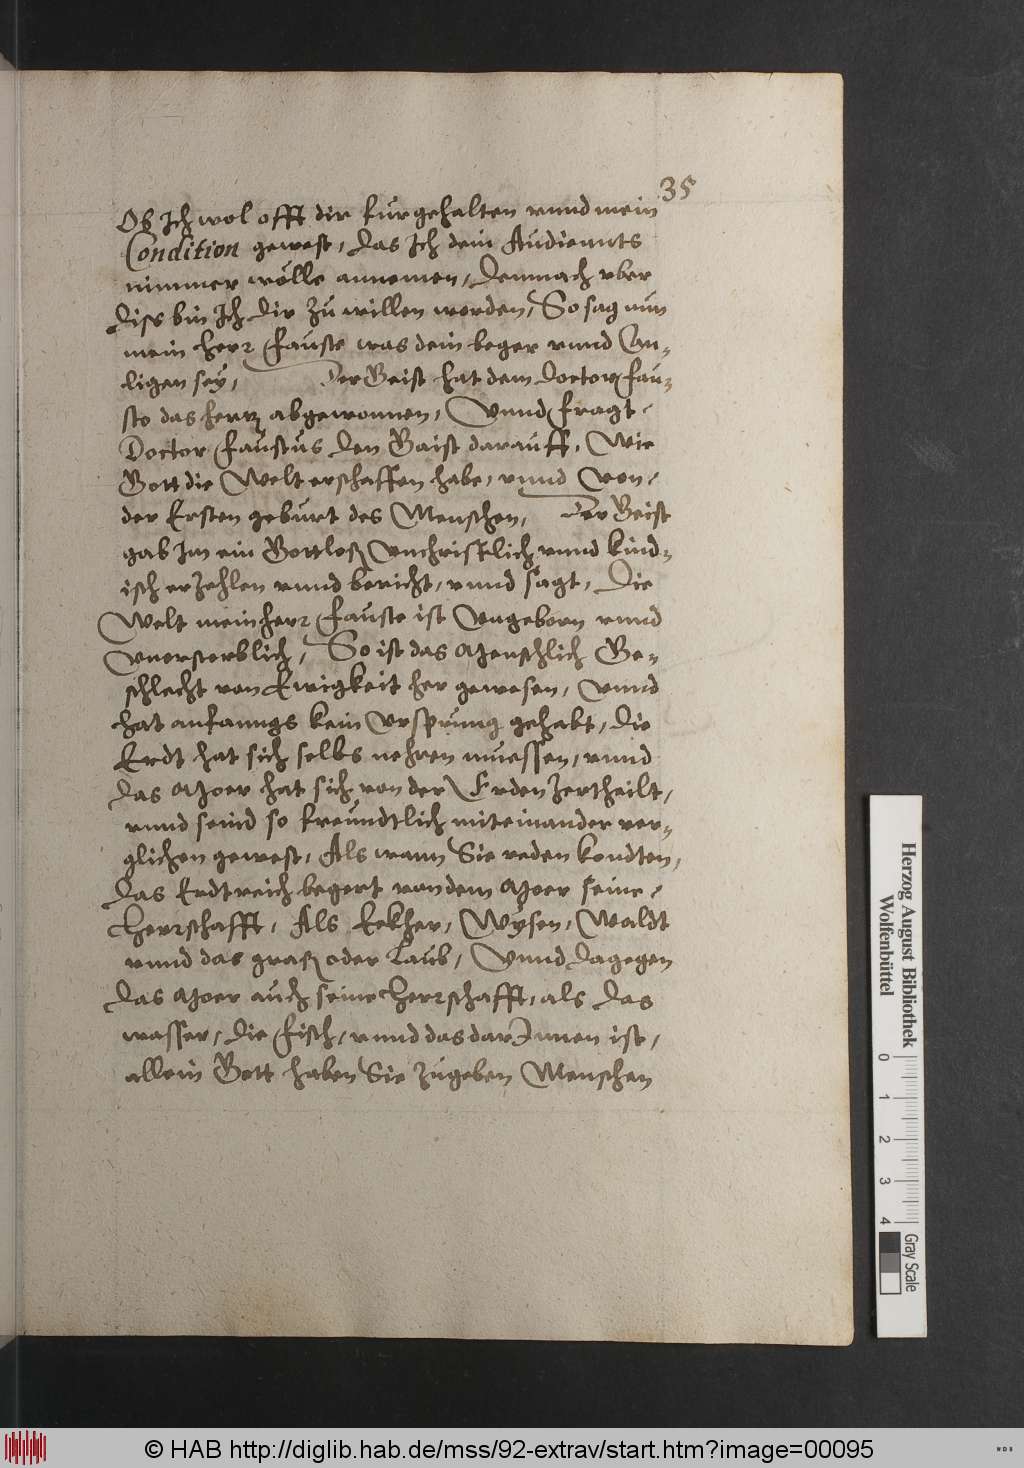 35
Ob Ich wol offt dir furgehalten vnnd mein
Condition gewest, das Ich dein Audiennts
nimmer wölle annemen, Dennach vber
diss bin Ich dir zu willen worden, So sag nun
mein herr Fauste was dein beger vnnd An-
ligen sey, Der Geist hat dem doctor Fau-
sto das hertz abgewonnen, Vnnd fragt
Doctor Faustus den Gaist darauff, Wie
Gott die Welt erschaffen habe, vnnd von
der Ersten geburt des Menschen, Der Geist
gab Im ein Gottloß Vnchristlich vnnd kind-
isch erzehlen vnnd bericht, vnnd sagt, Die
Welt mein herr Fauste ist Vngeborn vnnd
Vnersterblich, So ist das Menschlich Ge-
schlecht von Ewigkeit her gewesen, Vnnd
hat anfanngs kein Vrsprung gehabt, die
Erdt hat sich selbs nehren muessen, vnnd
das Moer hat sich von der Erden zertheilt,
vnnd seind so freundtlich miteinander ver-
glichen gewest, Als wann Sie reden kondten,
das Erdtreich begert von dem Moer seine
Herrschafft, Als Eekher, Wysen, Waldt
vnnd das graß oder Laub, Vnnd dagegen
das Moer auch seine Herrschafft, als das
wasser, die Fisch, vnnd das darInnen ist,
allein Gott haben Sie zugeben Menschen
Herzog August Bibliothek
Wolfenbüttel
0 1 2 3 4
Gray Scale
© HAB http://diglib.hab.de/mss/92-extrav/start.htm?image=00095
WDB